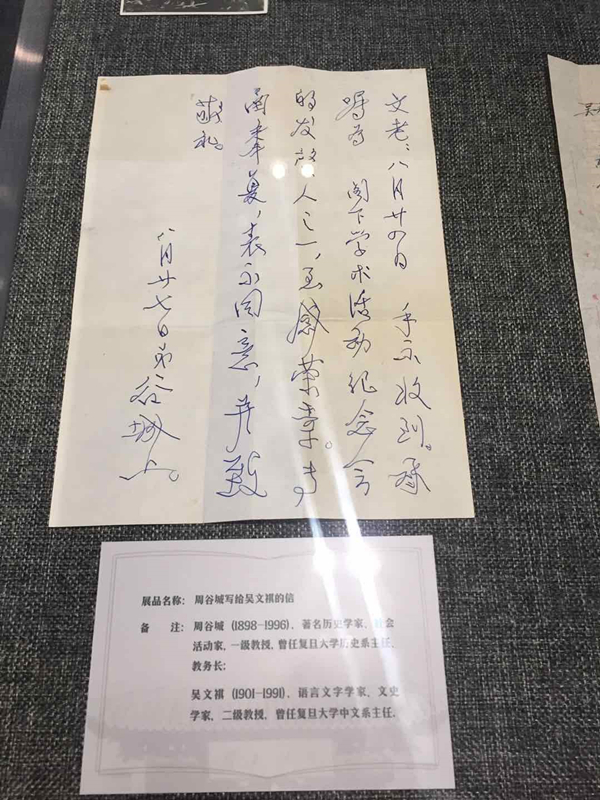 文老:八月廿四日 手示收到。承
嘱为 阁下学术活动纪念会
的发起人之一,至感荣幸。专
函奉复,表示同意,并致
敬礼。
八月廿七日弟谷城上。
展品名称: 周谷城写给吴文祺的信
备 注: 周谷城 (1898-1996)、著名历史学家、社会
活动家, 一级教授, 曾任复旦大学历史系主任、
教务长;
吴文祺 (1901-1991)、语言文字学家、文史
学家、二级教授、曾任复旦大学中文系主任。